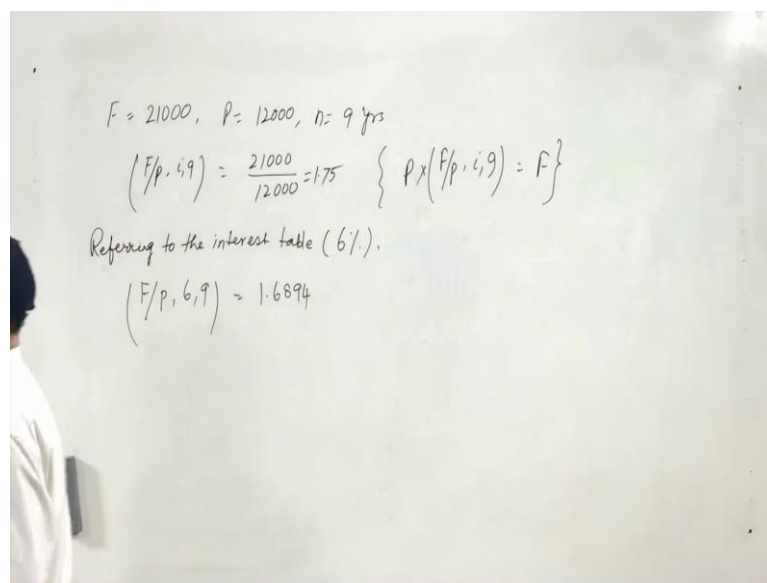 F = 21000, P = 12000, n = 9 yrs
(F/p, i, 9) = 21000/12000 = 1.75 { P x (F/p, i, 9) = F }
Referring to the interest table (6%).
(F/P, 6, 9) = 1.6894